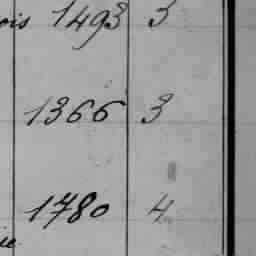 ois 1493 3
1366 3
1780 4